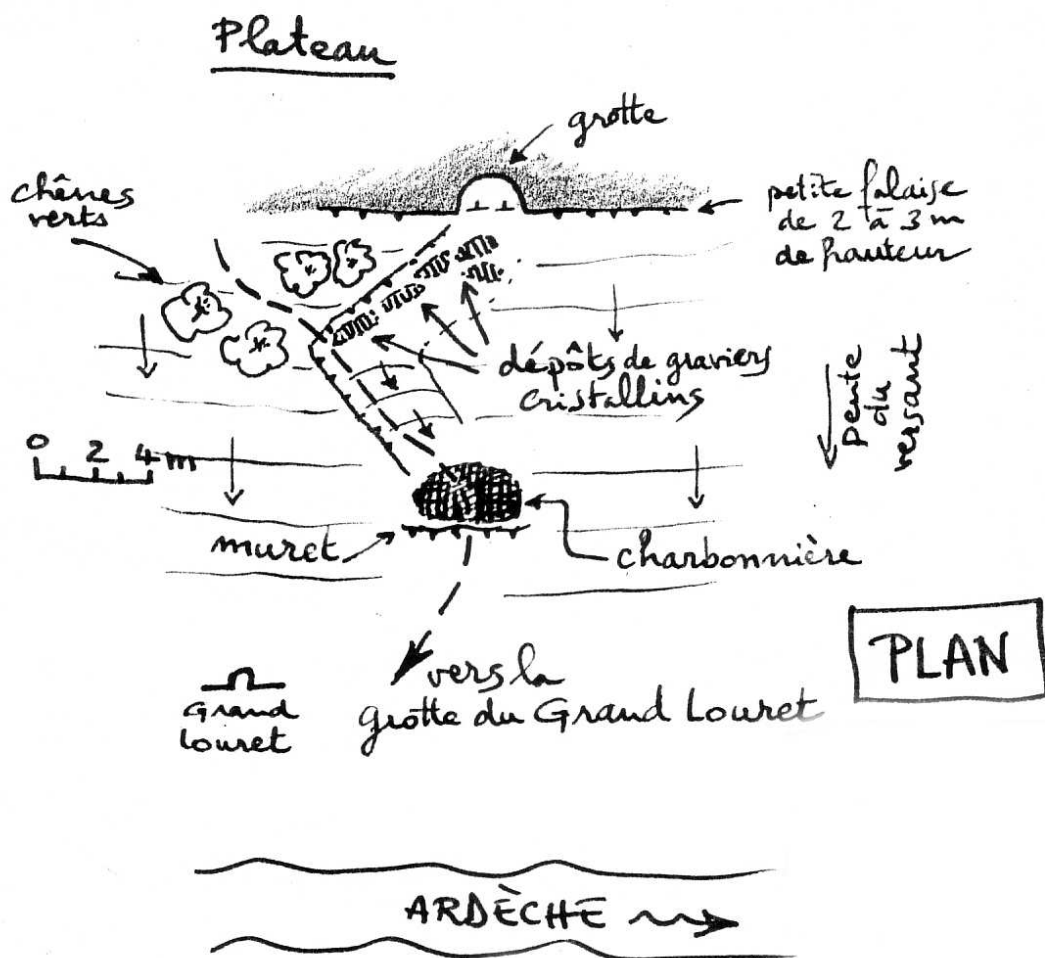 Plateau
grotte
chênes
verts
petite falaise
de 2 à 3 m
de hauteur
dépôts de graviers
cristallins
pente
du
versant
0 2 4 m
muret
charbonnière
PLAN
vers la
grotte du Grand Louret
Grand
Louret
ARDÈCHE